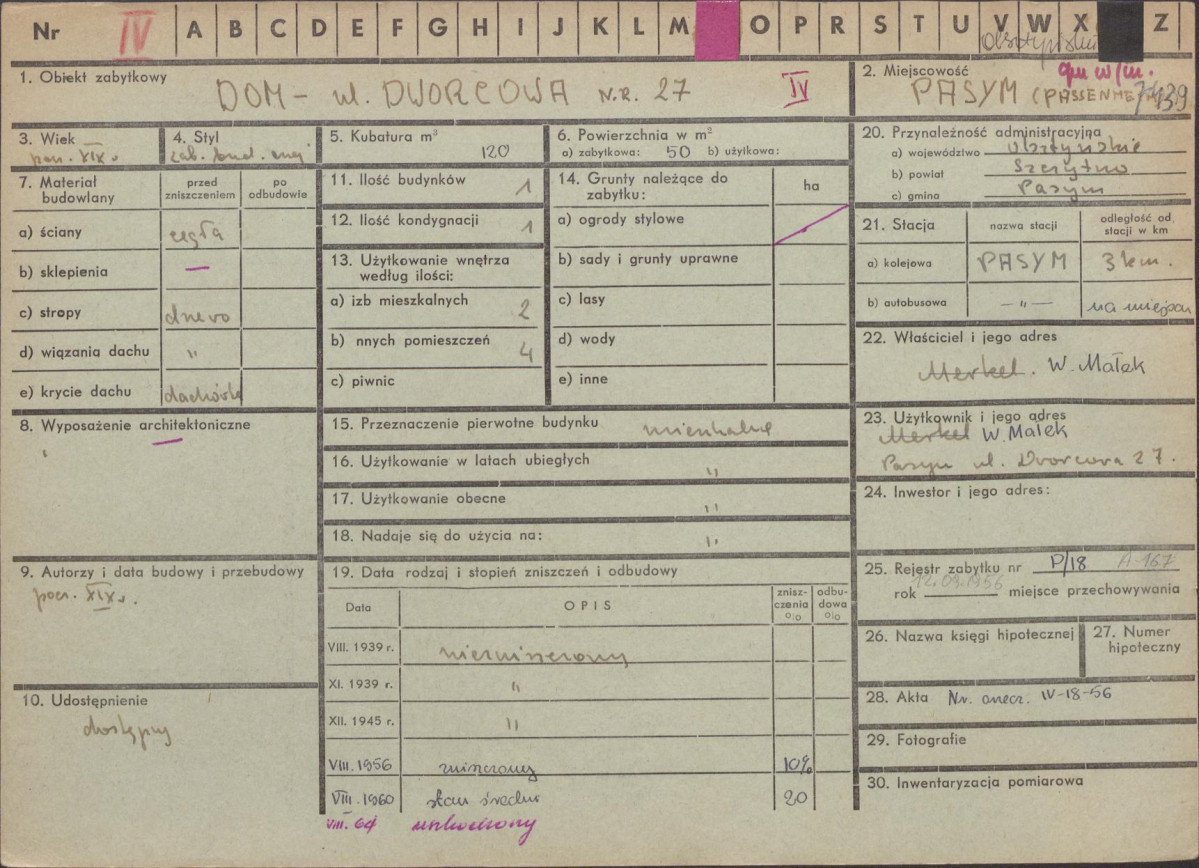 Nr IV A B C D E F G H I J K L M O P R S T U V W X Z
1. Obiekt zabytkowy
DOM - ul. DWORCOWA N.R. 27 IV
2. Miejscowość
gm w/m.
PASYM
3. Wiek
pocz. XIX w.
4. Styl
5. Kubatura m³
120
6. Powierzchnia w m²
a) zabytkowa: 50 b) użytkowa:
20. Przynależność administracyjna
a) województwo Olsztyńskie
b) powiat Szczytno
c) gmina Pasym
7. Materiał budowlany
przed zniszczeniem
po odbudowie
a) ściany cegła
b) sklepienia —
c) stropy drewo
d) wiązania dachu "
e) krycie dachu dachówka
11. Ilość budynków 1
12. Ilość kondygnacji 1
13. Użytkowanie wnętrza
według ilości:
a) izb mieszkalnych 2
b) nnych pomieszczeń 4
c) piwnic
14. Grunty należące do
zabytku:
ha
a) ogrody stylowe
b) sady i grunty uprawne
c) lasy
d) wody
e) inne
21. Stacja
nazwa stacji
odległość od
stacji w km
a) kolejowa PASYM 3 km.
b) autobusowa — " — na miejscu
22. Właściciel i jego adres
Merkel. W. Małek
23. Użytkownik i jego adres
Merkel W. Małek
Pasym ul. Dworcowa 27.
24. Inwestor i jego adres:
25. Rejestr zabytku nr P/18 A-167
rok 12.03.1956 miejsce przechowywania
26. Nazwa księgi hipotecznej
27. Numer
hipoteczny
28. Akta Nr. orzecz. IV-18-56
29. Fotografie
30. Inwentaryzacja pomiarowa
8. Wyposażenie architektoniczne
—
9. Autorzy i data budowy i przebudowy
pocz. XIX w.
10. Udostępnienie
dostępny
15. Przeznaczenie pierwotne budynku mieszkalne
16. Użytkowanie w latach ubiegłych "
17. Użytkowanie obecne "
18. Nadaje się do użycia na: "
19. Data rodzaj i stopień zniszczeń i odbudowy
Data
OPIS
znisz-
czenia
o|o
odbu-
dowa
o|o
VIII. 1939 r. niezniszczony
XI. 1939 r. "
XII. 1945 r. "
VIII. 1956 zniszczony 10%
VIII. 1960 stan średni 20
VIII. 64 uszkodzony